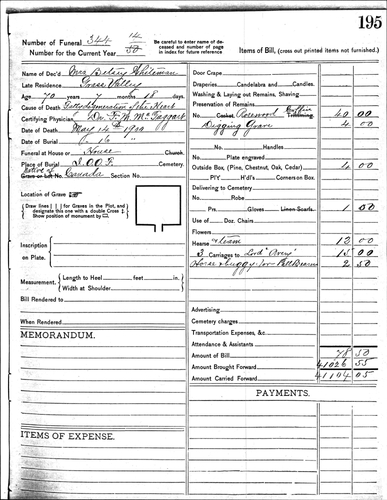 195
Number of Funeral 344 14
Number for the Current Year 50
Be careful to enter name of deceased and number of page in index for future reference
Items of Bill, (cross out printed items not furnished.)
Name of Dec'd Mrs Betsey Whiteman
Late Residence Grass Valley
Age 70 years 7 months 18 days
Cause of Death Fatty degeneration of the Heart
Certifying Physician Dr. F. W. McTaggart
Date of Death May 14th 1900
Date of Burial " 16 "
Funeral at House or House Church.
Place of Burial I.O.O.F. Cemetery.
Native of Canada
Grave or Lot No. Section No.
LOCATION OF GRAVE
(Draw lines | for Graves in the Plot, and designate this one with a double Cross. Show position of monument by
Inscription on Plate.
Measurement. Length to Heel feet in.
Width at Shoulder "
Bill Rendered to
When Rendered
MEMORANDUM.
ITEMS OF EXPENSE.
Door Crape
Draperies, Candelabra and Candles.
Washing & Laying out Remains, Shaving,
Preservation of Remains
No. Casket, Rosewood Coffin Trimming, 40 00
Digging Grave 4 00
No. Handles
Plate engraved
Outside Box, (Pine, Chestnut, Oak, Cedar) 4 00
P'Y, H'd's Corners on Box.
Delivering to Cemetery
No. Robe
Prs. Gloves, Linen Scarfs, 1 50
Use of Doz. Chairs
Flowers
Hearse & team 12 00
3 Carriages to 15 00
Horse & buggy for Pall Bearers 2 50
Advertising
Cemetery charges
Transportation Expenses, &c.
Attendance & Assistants
Amount of Bill 78 50
Amount Brought Forward 41026 55
Amount Carried Forward 41104 05
PAYMENTS.